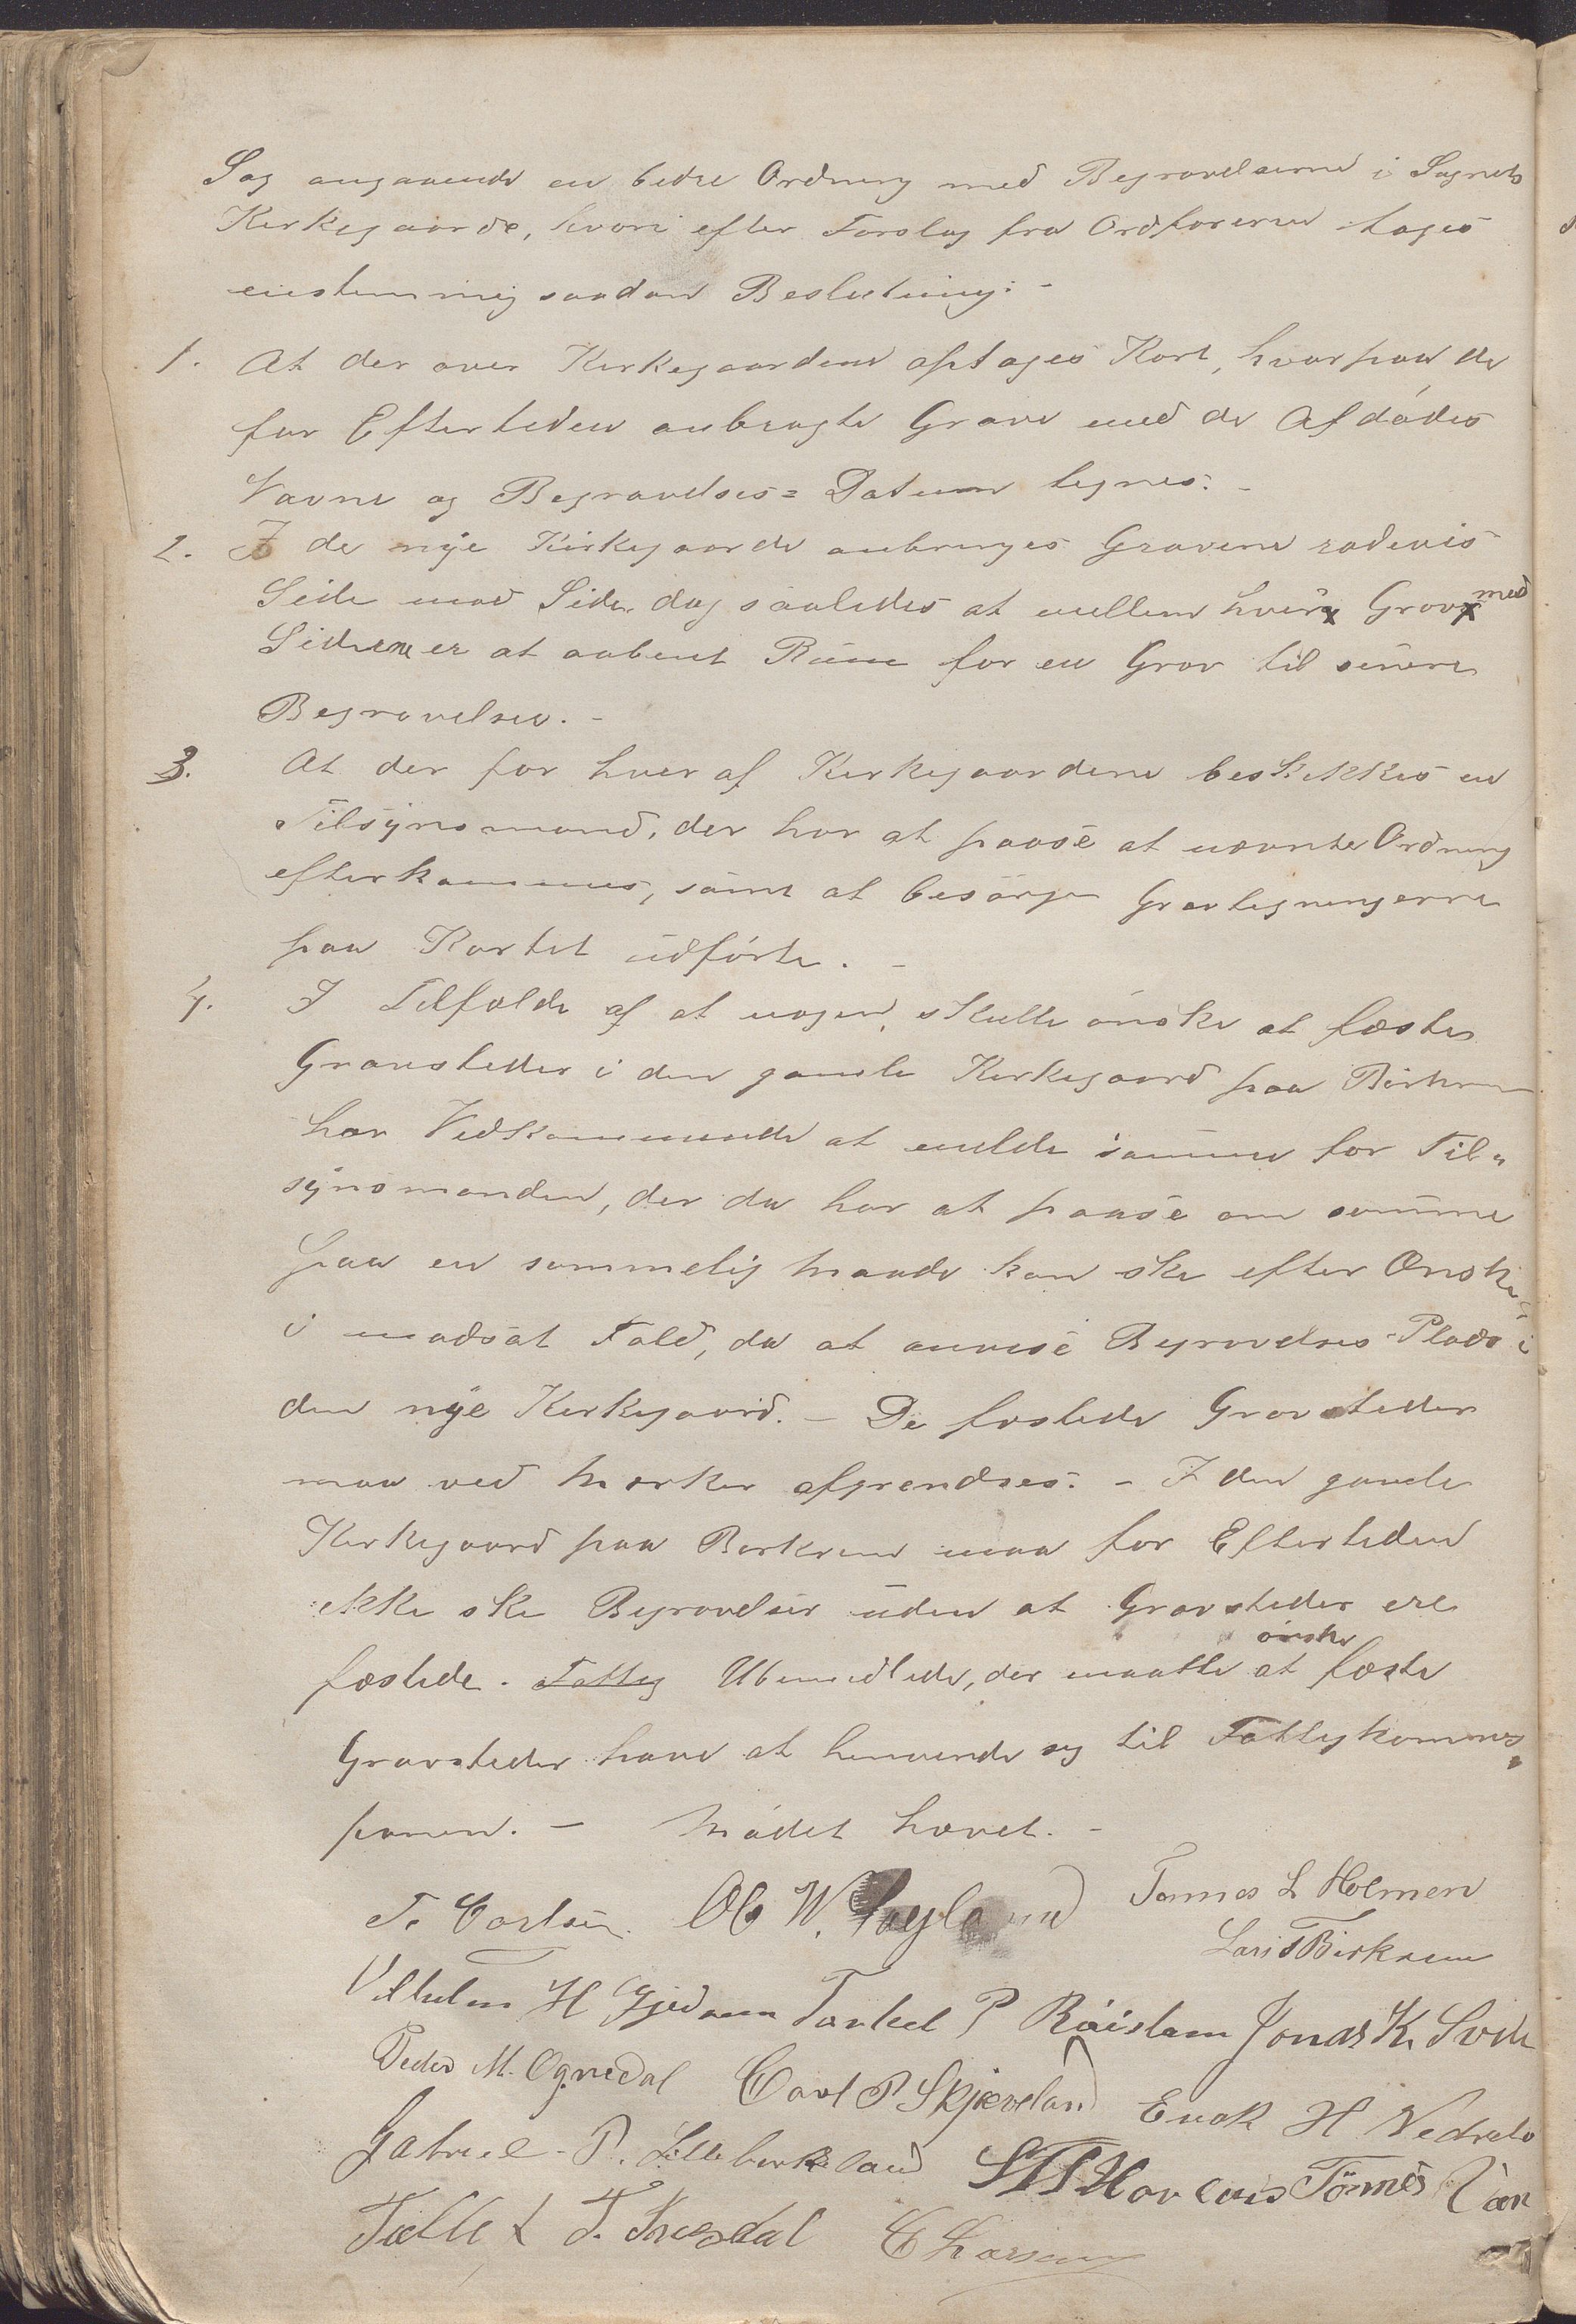 Sag angaaende en bedre Ordning med Begravelserne i Sognets
Kirkegaarde, hvori efter Forslag fra Ordføreren toges
enstemmig saadan Beslutning: -
1. At der over Kirkegaardene optages Kort, hvorpaa de
for Eftertiden anbragte Grave med de Afdødes
Navne og Begravelses= Datum tegnes. -
2. I de nye Kirkegaarde anbringes Gravene radevis
Side mod Side, dog saaledes at mellem hver Grav med
Siderne er at aabent Rum for en Grav til senere
Begravelser. -
3. At der for hver af Kirkegaardene beskikkes en
Tilsynsmand, der har at paase at nævnte Ordning
efterkommes, samt at besørge Gravtegningerne
paa Kartet udførte. -
4. I Tilfælde af at nogen skulle ønske at fæste
Gravsteder i den gamle Kirkegaard paa Birkrem
har Vedkommende at melde samme for Til=
synsmanden, der da har at paase om samme
paa en sømmelig Maade kan ske efter Ønske,
i modsat Fald, da at anvise Begravelses-Plads i
den nye Kirkegaard. - De fæstede Gravsteder
maa ved Mærker afgrendses. - I den gamle
Kirkegaard paa Birkrem maa for Eftertiden
ikke ske Begravelser uden at Gravsteder ere
fæstede. Fattig Ubemidlede, der maatte ønske at fæste
Gravsteder have at henvende sig til Fattigkommis=
sionen. - Mødet hævet. -
T. Carlsen. Ol W. Tomas L Holmen
Lars T Birkrem
Vilhelm H Gjedrem Torkel P Røislem Jonas K.
Peder M. Ognedal Carl P Skjæveland Enok H Nedrebø
Gabriel P. Lillebirkeland Tønnes
Tolle T. E Larsen